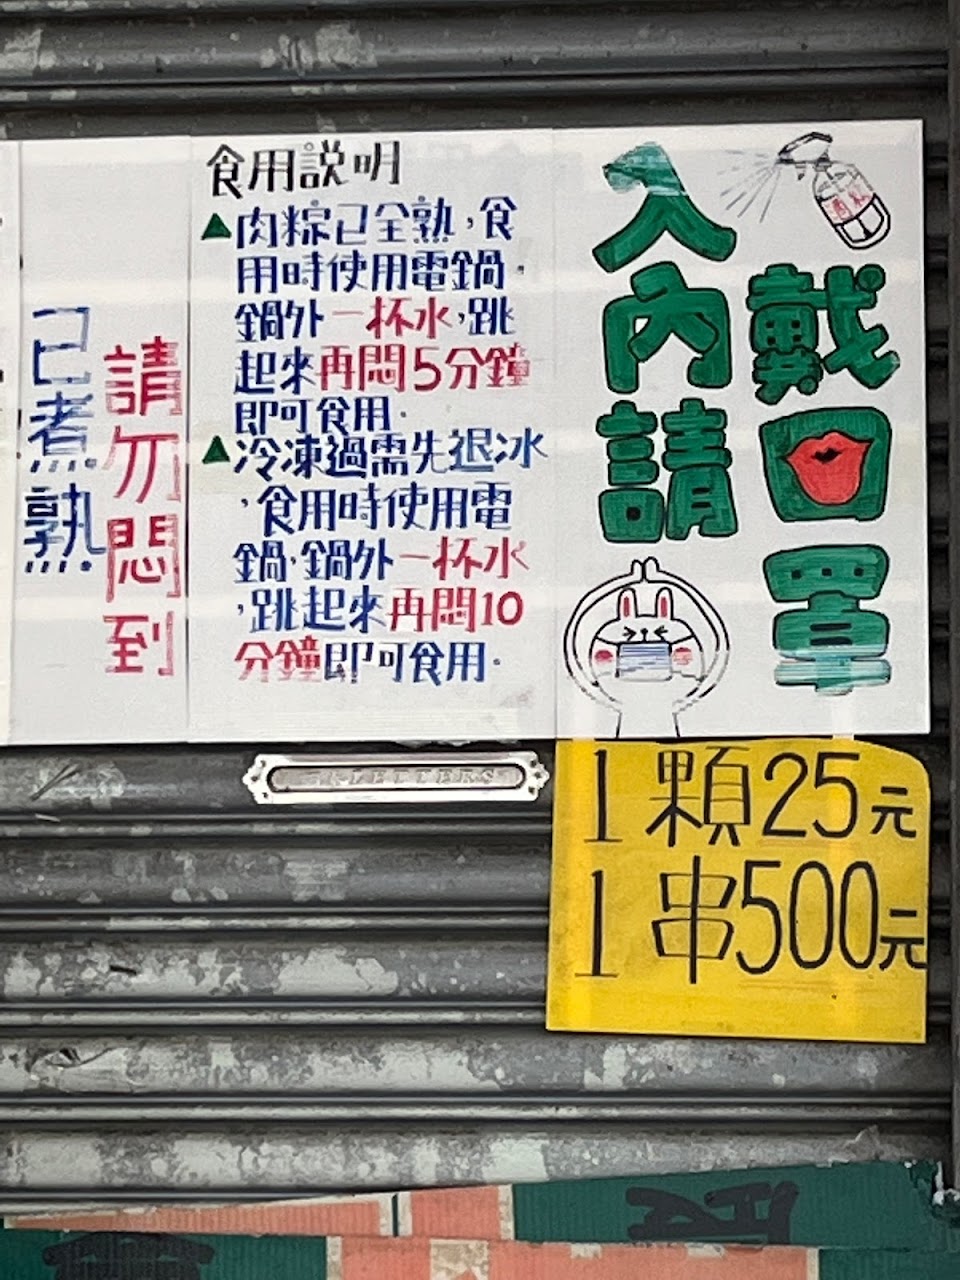 已煮熟
請勿悶到
食用說明
▲肉粽已全熟,食
用時使用電鍋.
鍋外一杯水,跳
起來再悶5分鐘
即可食用.
▲冷凍過需先退冰
,食用時使用電
鍋,鍋外一杯水
,跳起來再悶10
分鐘即可食用.
入內請
戴口罩
LETTERS
1顆25元
1串500元